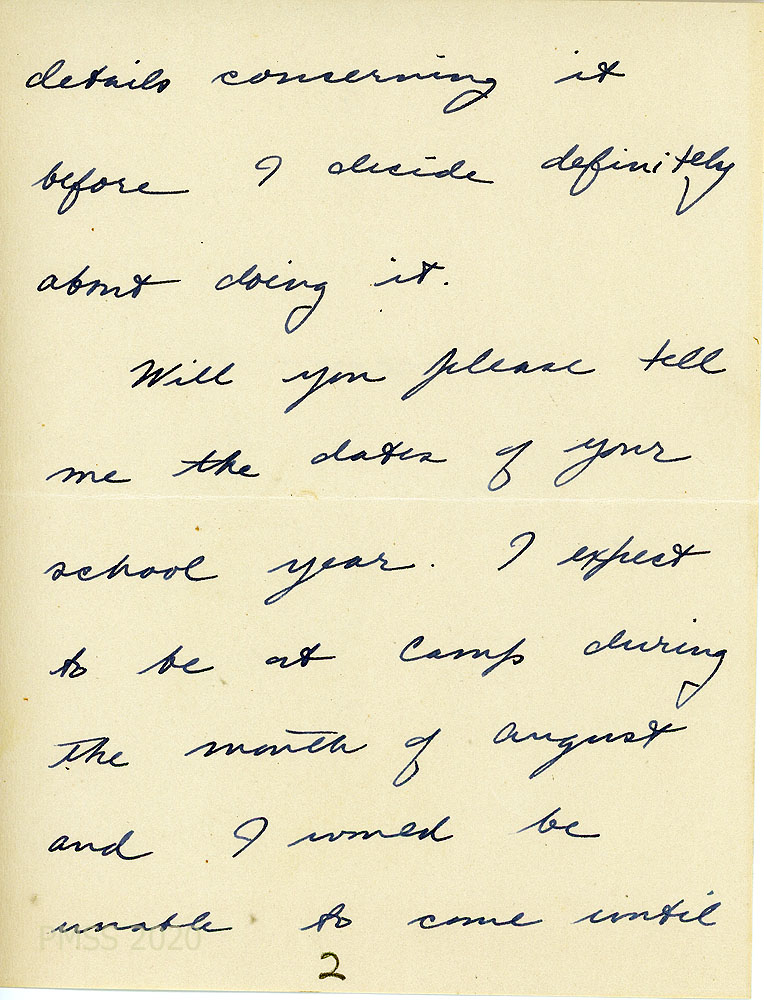 details concerning it
before I decide definitely
about doing it.
Will you please tell
me the dates of your
school year. I expect
to be at Camp during
the month of august
and I would be
unable to come until
PMSS 2020
2